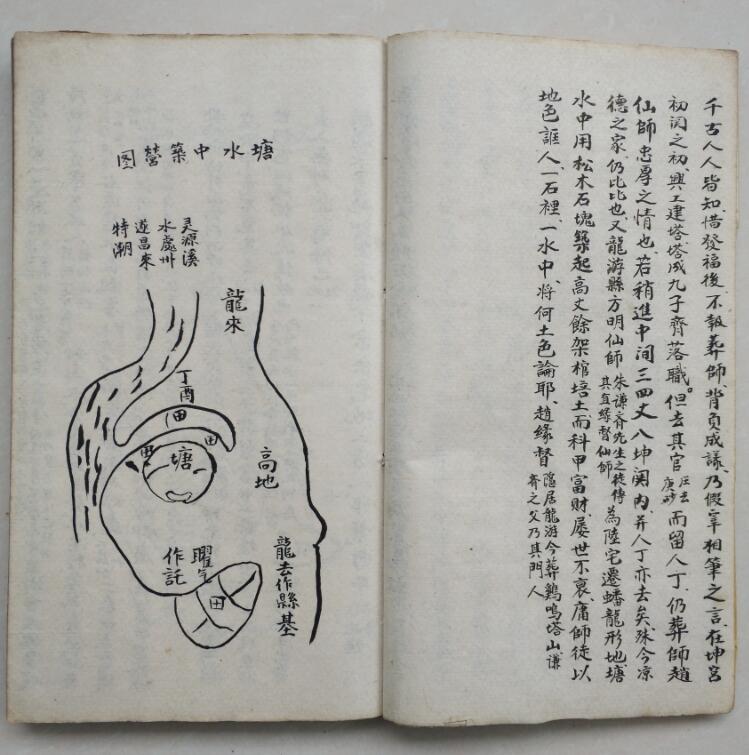 千古人人皆知、惜發福後、不報葬師、背负成議、乃假宰相筆之言、在坤宮
初関之初、興工建塔、塔成九子齊落職。但去其官庚砂而留人丁、仍葬師趙
仙師忠厚之情也、若稍進中间三四丈八坤関內、并人丁亦去矣、殊今凉
德之家、仍比比也、又龍游縣方明仙師朱謙齊先生之徒傳其直缘督仙師為陸宅遷蟠龍形地、塘
水中用松木石塊築起高丈餘架棺培土、而科甲富財、屡世不衰、庸師徒以
地色誆人、一石裡、一水中、将何土色論耶、趙緣督隱居龍游今葬鷄鳴塔山、謙
齊之父乃其門人
塘水中築營图
灵源溪
水處州
遂昌來
特潮
龍來
丁酉
田
田
田
塘
高地
曜气
作託
田
龍去作縣基